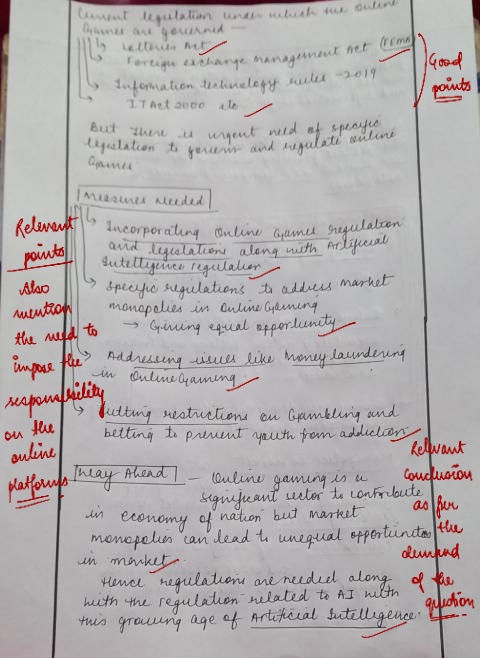 Current legislation under which the online
Games are governed —
Lotteries Act
Foreign exchange management Act (FEMA)
Information technology rules - 2019
IT Act 2000 etc
Good
points
But there is urgent need of specific
legislation to govern and regulate online
Games
Measures Needed
Incorporating Online Games regulation
and legislations along with Artificial
Intelligence regulation
Specific regulations to address market
monopolies in Online Gaming
→ Giving equal opportunity
Addressing issues like Money laundering
in Online Gaming
Putting restrictions on Gambling and
betting to prevent youth from addiction
Relevant
points
Also
mention
the need to
impose the
responsibility
on the
online
platforms
Way Ahead — Online gaming is a
significant sector to contribute
in economy of nation but market
monopolies can lead to unequal opportunities
in market
Hence regulations are needed along
with the regulation related to AI with
this growing age of Artificial Intelligence.
Relevant
Conclusion
as per
the
demand
of the
question